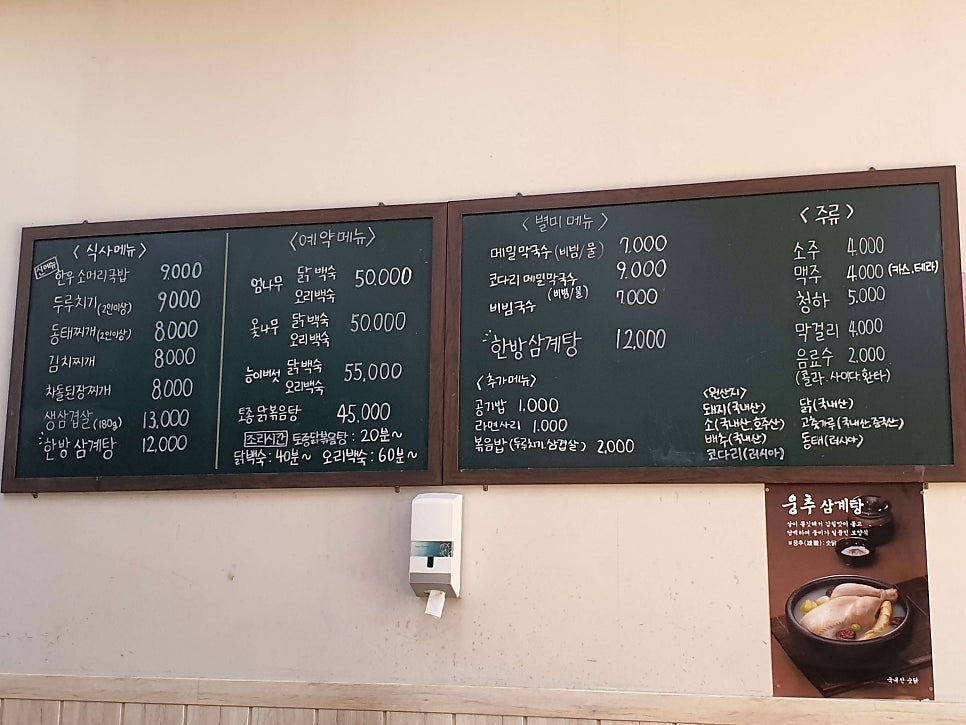 〈 식사메뉴 〉
신메뉴
한우 소머리국밥 9000
두루치기 (2인이상) 9000
동태찌개 (2인이상) 8.000
김치찌개 8000
차돌된장찌개 8.000
생삼겹살 (180g) 13,000
한방 삼계탕 12.000
〈예약메뉴〉
엄나무 닭 백숙 50.000
오리백숙
옻나무 닭백숙 50.000
오리백숙
능이버섯 닭백숙 55,000
오리백숙
토종 닭볶음탕 45.000
조리시간 토종닭볶음탕 : 20분~
닭백숙 : 40분~ 오리백숙 : 60분~
〈 별미 메뉴 〉
메밀막국수 (비빔/물) 7,000
코다리 메밀막국수 9,000
(비빔/물)
비빔국수 7.000
한방삼계탕 12,000
〈추가메뉴〉
공기밥 1.000
라면사리 1.000
볶음밥 (두루치기.삼겹살) 2,000
〈 주류 〉
소주 4.000
맥주 4.000 (카스.테라)
청하 5.000
막걸리 4,000
음료수 2,000
(콜라. 사이다.환타)
〈원산지〉
돼지(국내산) 닭(국내산)
소(국내산.호주산) 고춧가루(국내산.중국산)
배추(국내산) 동태(러시아)
코다리(러시아)
웅추 삼계탕
살이 쫄깃해서 감칠맛이 돌고
담백하며 풍미가 일품인 보양식
※웅추(雄雛) : 숫닭
국내산 숫닭